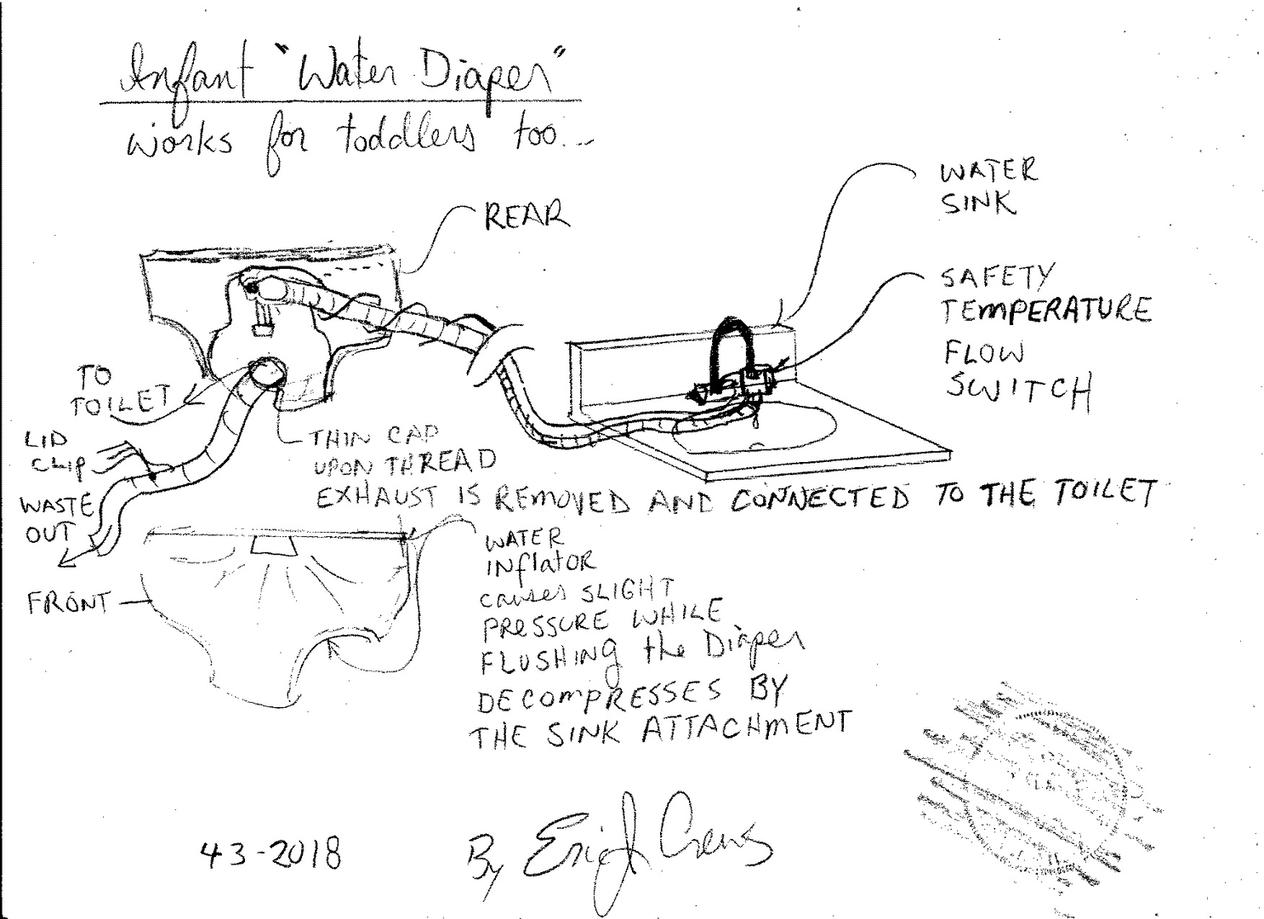 Infant "Water Diaper"
works for toddlers too...
WATER
SINK
REAR
SAFETY
TEMPERATURE
FLOW
SWITCH
TO
TOILET
LID
CLIP
WASTE
OUT
THIN CAP
UPON THREAD
EXHAUST IS REMOVED AND CONNECTED TO THE TOILET
WATER
inflator
causes SLIGHT
PRESSURE WHILE
FLUSHING the Diaper
DECOMPRESSES BY
THE SINK ATTACHMENT
FRONT
43-2018
By Eric J Crews